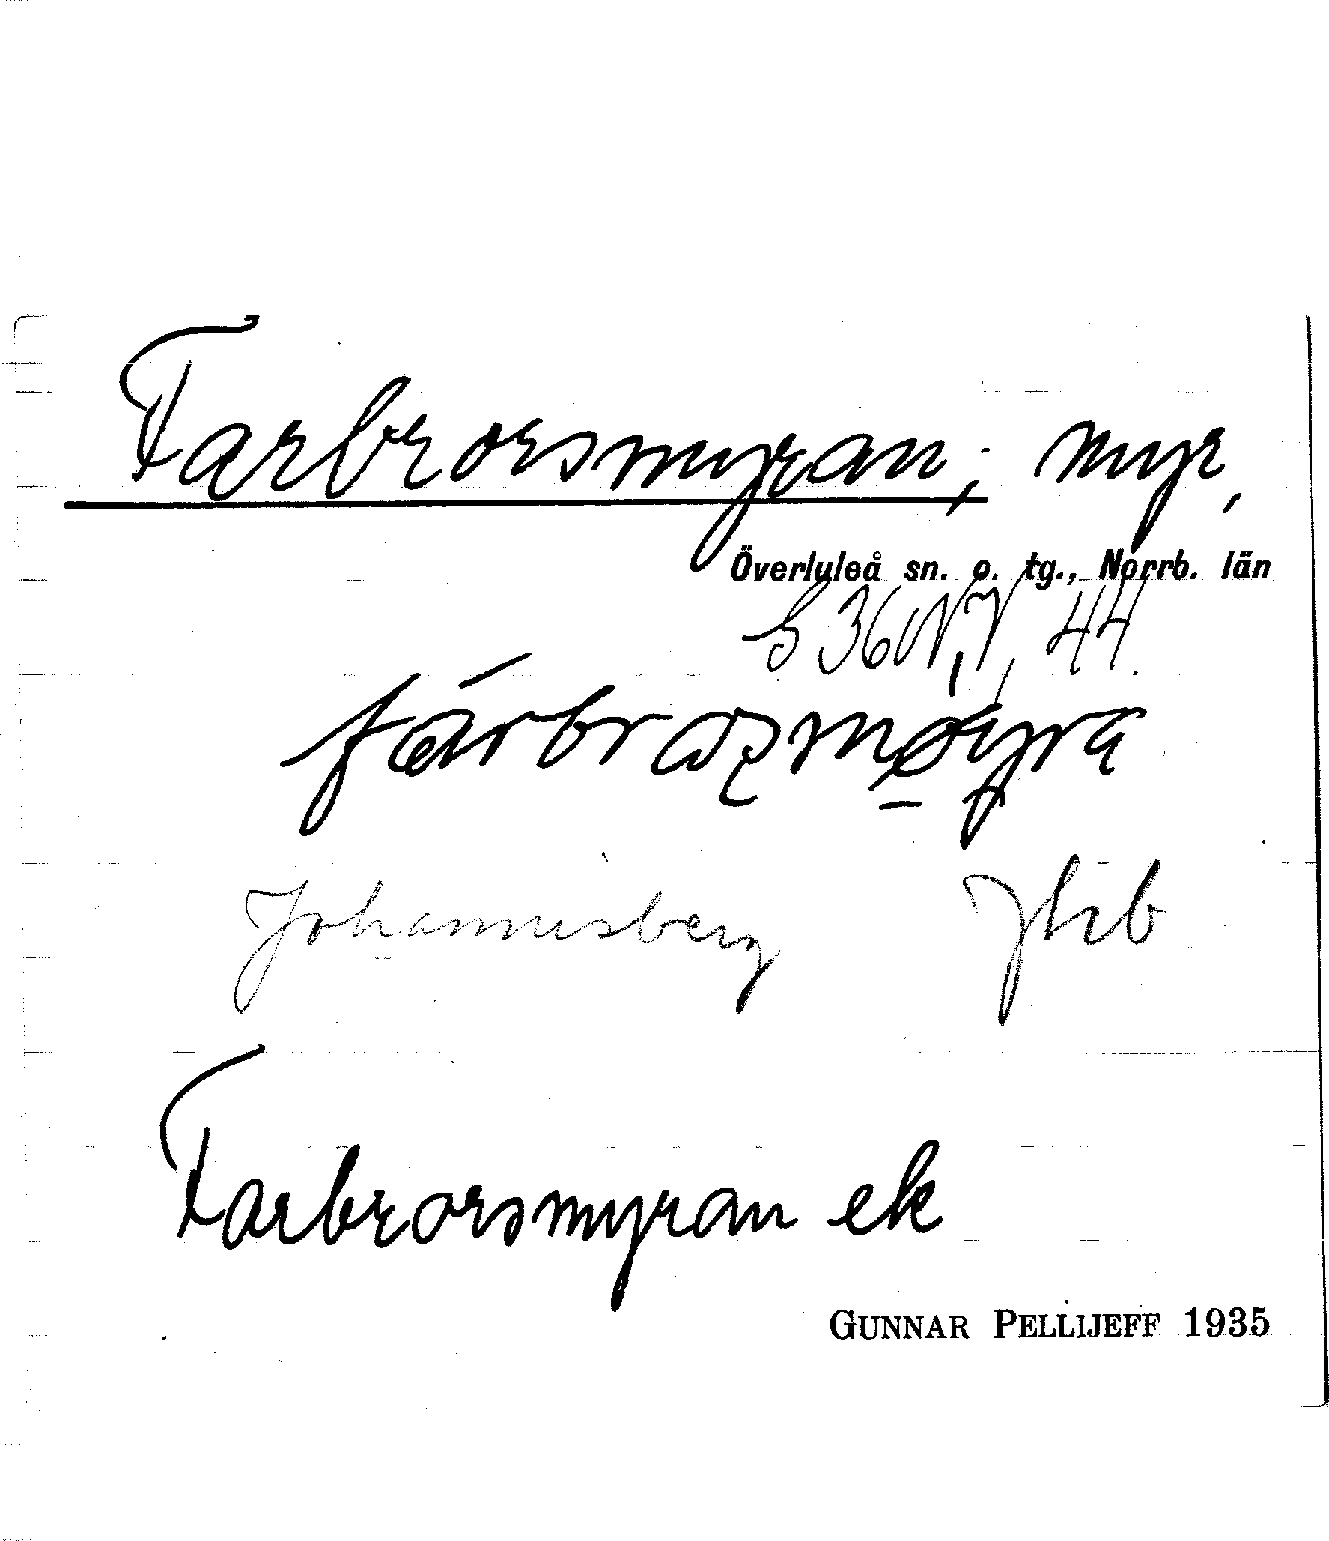 Farbrorsmyran; myr,
Överluleå sn. o. tg., Norrb. län
fárbrormøyra
Johannisberg Jhb
Farbrorsmyran ek
GUNNAR PELLIJEFF 1935